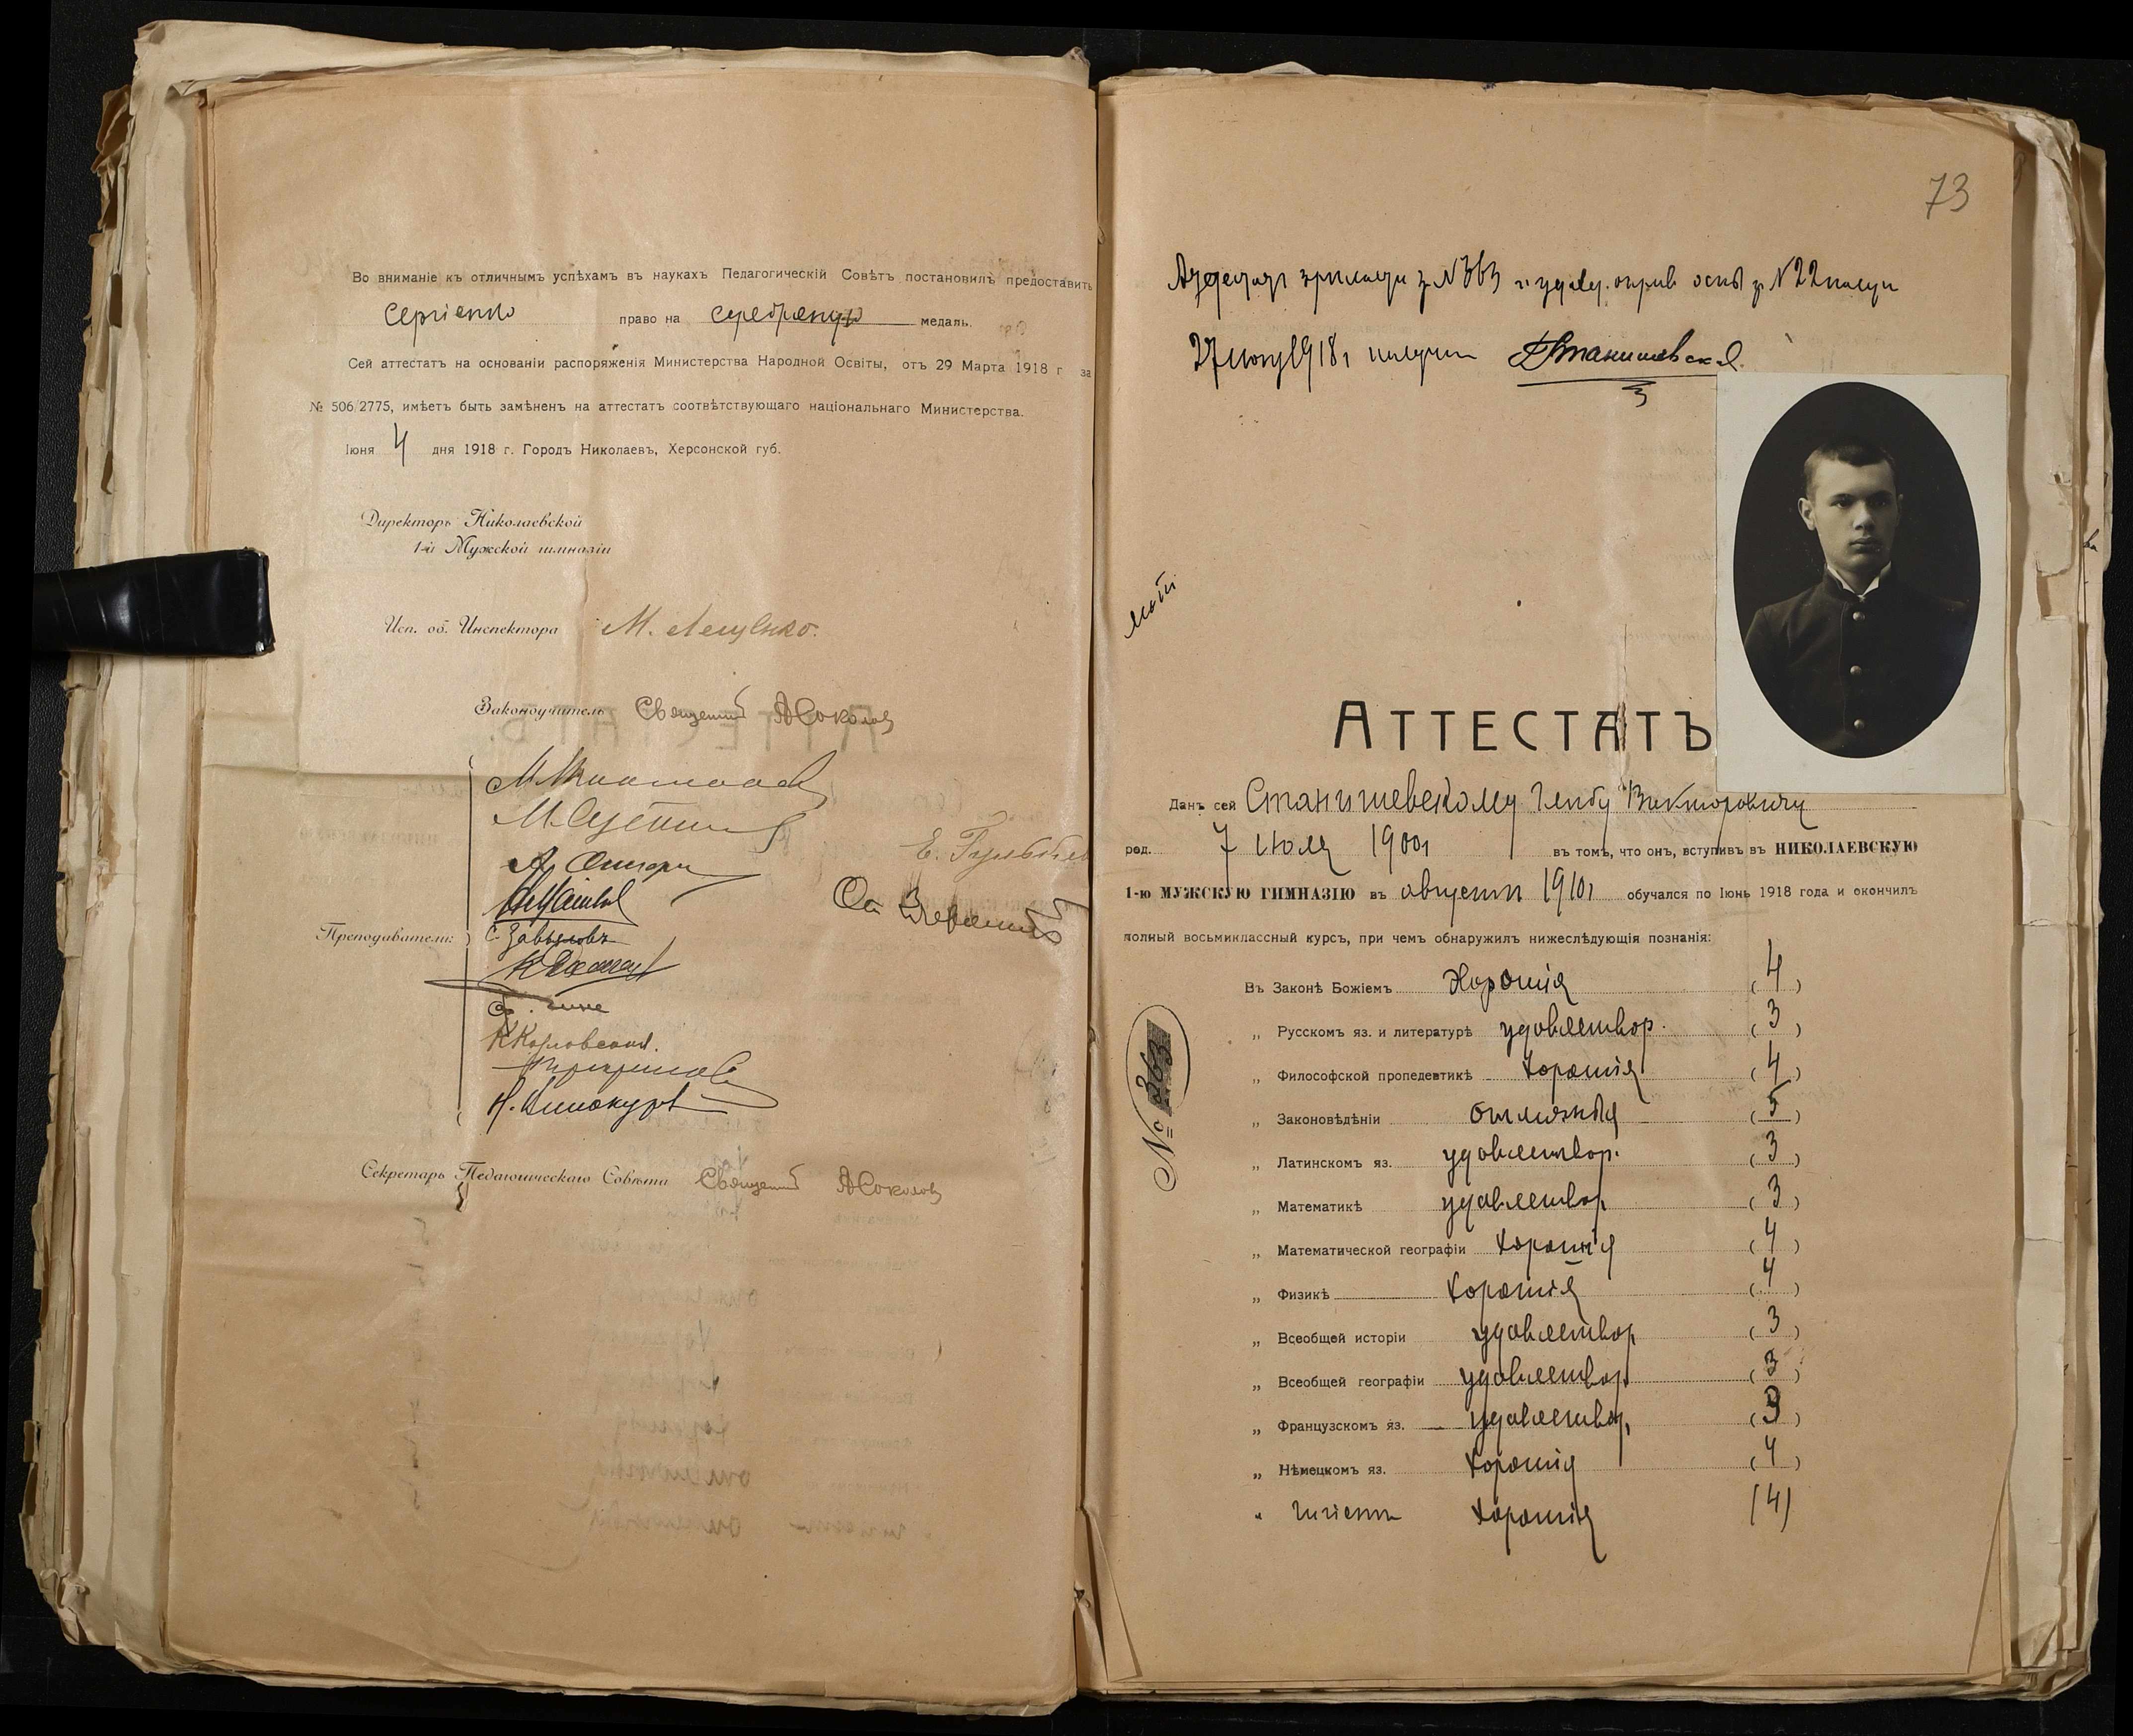 Во вниманіе къ отличнымъ успѣхамъ въ наукахъ Педагогическій Совѣтъ постановилъ предоставить
Сергіенко право на серебряную медаль.
Сей аттестатъ на основаніи распоряженія Министерства Народной Освіты, отъ 29 Марта 1918 г за
№ 506/2775, имѣетъ быть замѣненъ на аттестатъ соотвѣтствующаго національнаго Министерства.
Іюня 4 дня 1918 г. Городъ Николаевъ, Херсонской губ.
Директоръ Николаевской
1-й Мужской гимназіи
Исп. об. Инспектора М. Лещенко.
Законоучитель Священникъ А Соколовъ
Преподаватели:
С. Завьяловъ
Секретарь Педагогическаго Совѣта Священникъ А Соколовъ
73
N 363 N 22
27 1918 г
АТТЕСТАТЪ
Данъ сей Станишевскому Глѣбу Викторовичу
род. 7 Июля 1900 г въ томъ, что онъ, вступивъ въ НИКОЛАЕВСКУЮ
1-ю МУЖСКУЮ ГИМНАЗІЮ въ августѣ 1910 г обучался по Іюнь 1918 года и окончилъ
полный восьмиклассный курсъ, при чемъ обнаружилъ нижеслѣдующія познанія:
Въ Законѣ Божіемъ Хорошія (4)
„ Русскомъ яз. и литературѣ удовлетвор. (3)
„ Философской пропедевтикѣ хорошія (4)
„ Законовѣдѣніи отличныя (5)
„ Латинскомъ яз. удовлетвор. (3)
„ Математикѣ удовлетвор (3)
„ Математической географіи хорошія (4)
„ Физикѣ хорошія (4)
„ Всеобщей исторіи удовлетвор (3)
„ Всеобщей географіи удовлетвор. (3)
„ Французскомъ яз. удовлетвор. (3)
„ Нѣмецкомъ яз. хорошія (4)
„ Гигіенѣ хорошія (4)
№ 363